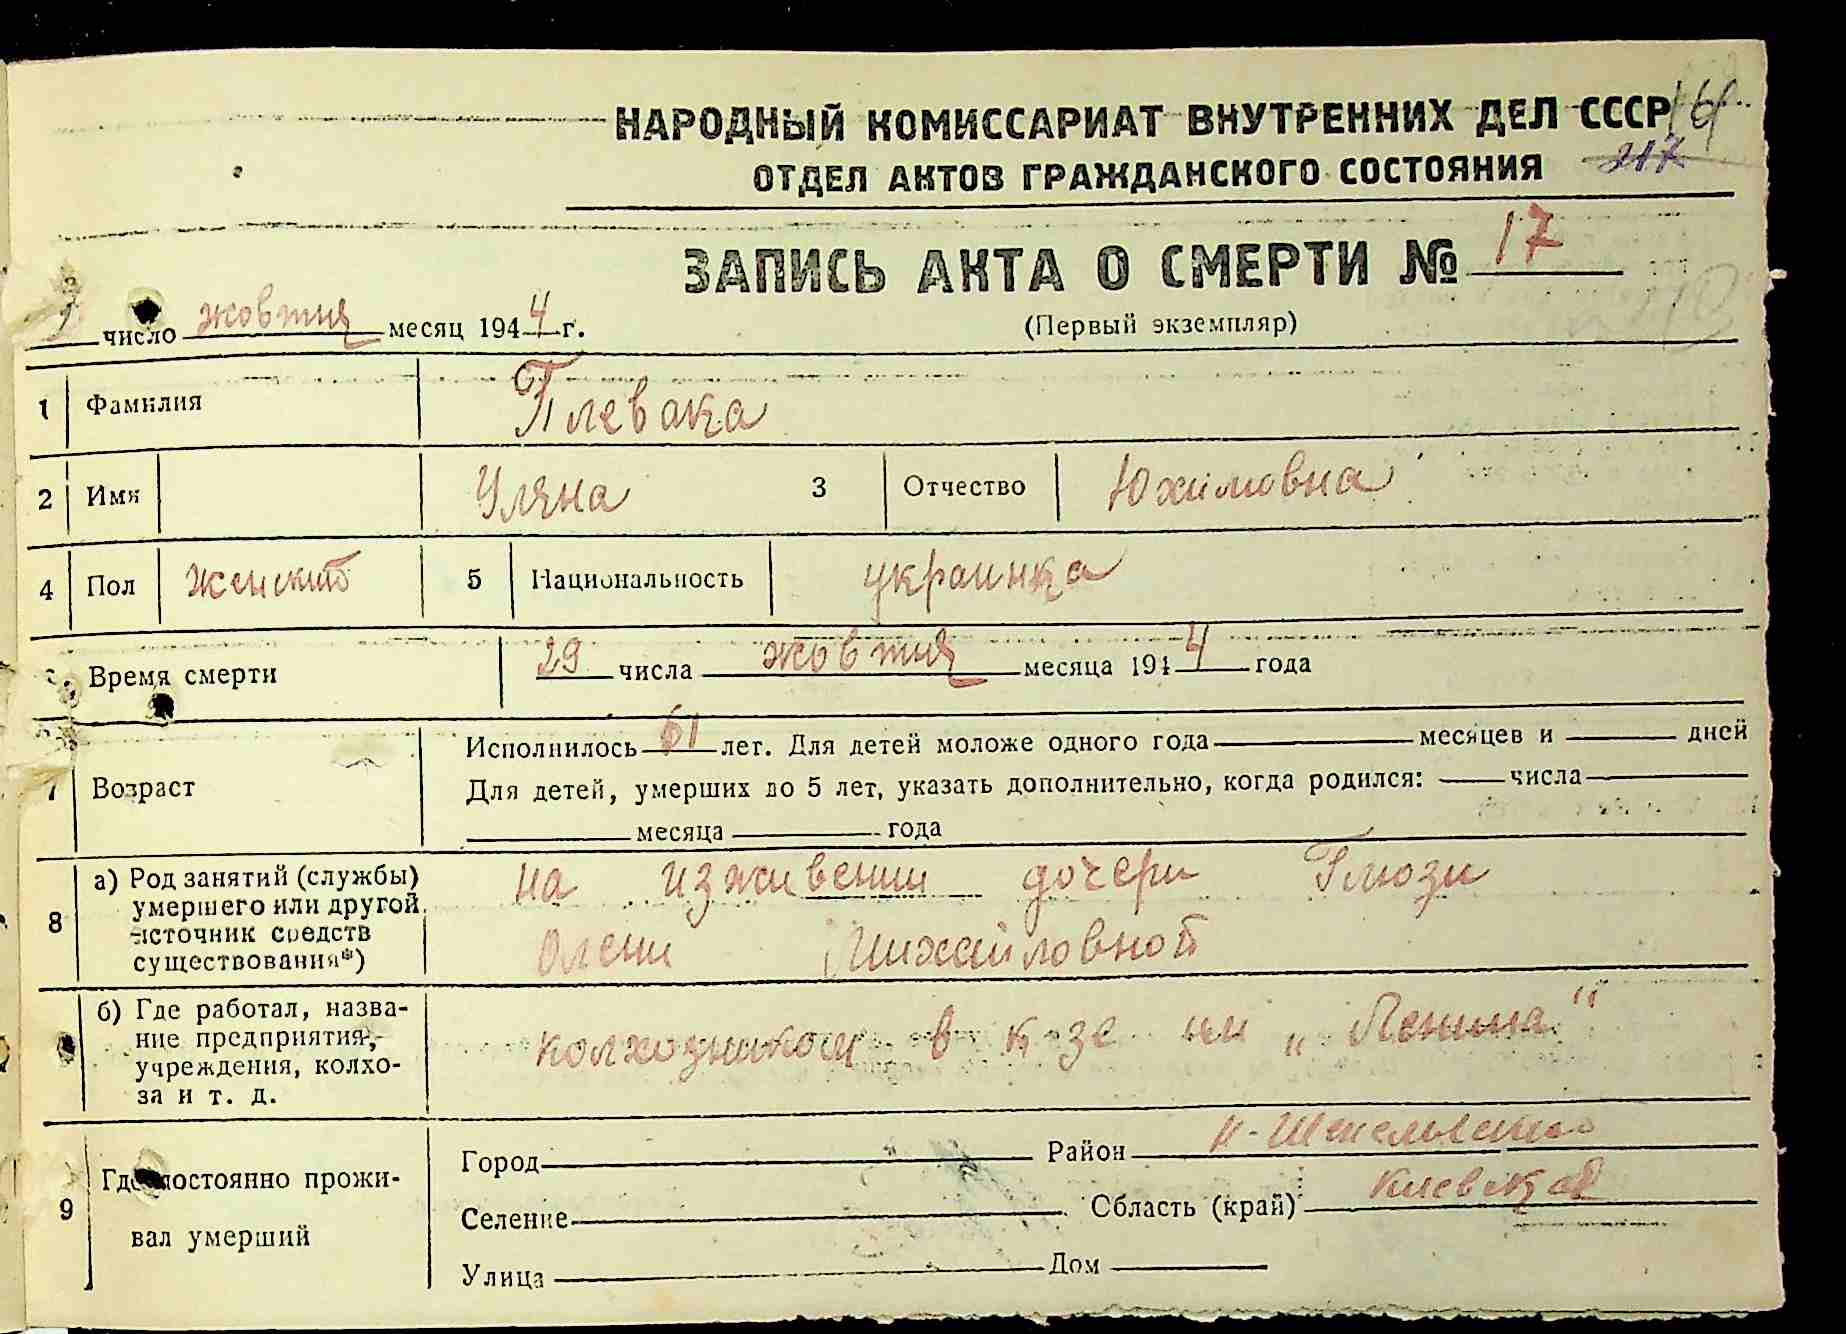 НАРОДНЫЙ КОМИССАРИАТ ВНУТРЕННИХ ДЕЛ СССР
ОТДЕЛ АКТОВ ГРАЖДАНСКОГО СОСТОЯНИЯ 217
ЗАПИСЬ АКТА О СМЕРТИ № 17
число жовтня месяц 1944 г. (Первый экземпляр)
1 Фамилия Плевака
2 Имя Уляна 3 Отчество Юхимовна
4 Пол женский 5 Национальность украинка
Время смерти 29 числа жовтня месяца 1944 года
7 Возраст Исполнилось 61 лет. Для детей моложе одного года месяцев и дней
Для детей, умерших до 5 лет, указать дополнительно, когда родился: числа
месяца года
8 а) Род занятий (службы) умершего или другой источник средств существования*) на изживении дочери Глюзи
Олени Михайловной
б) Где работал, название предприятия, учреждения, колхоза и т. д. колхозником в к-зе им „Ленина“
9 Где постоянно проживал умерший Город Район
Селение Область (край) Киевской
Улица Дом